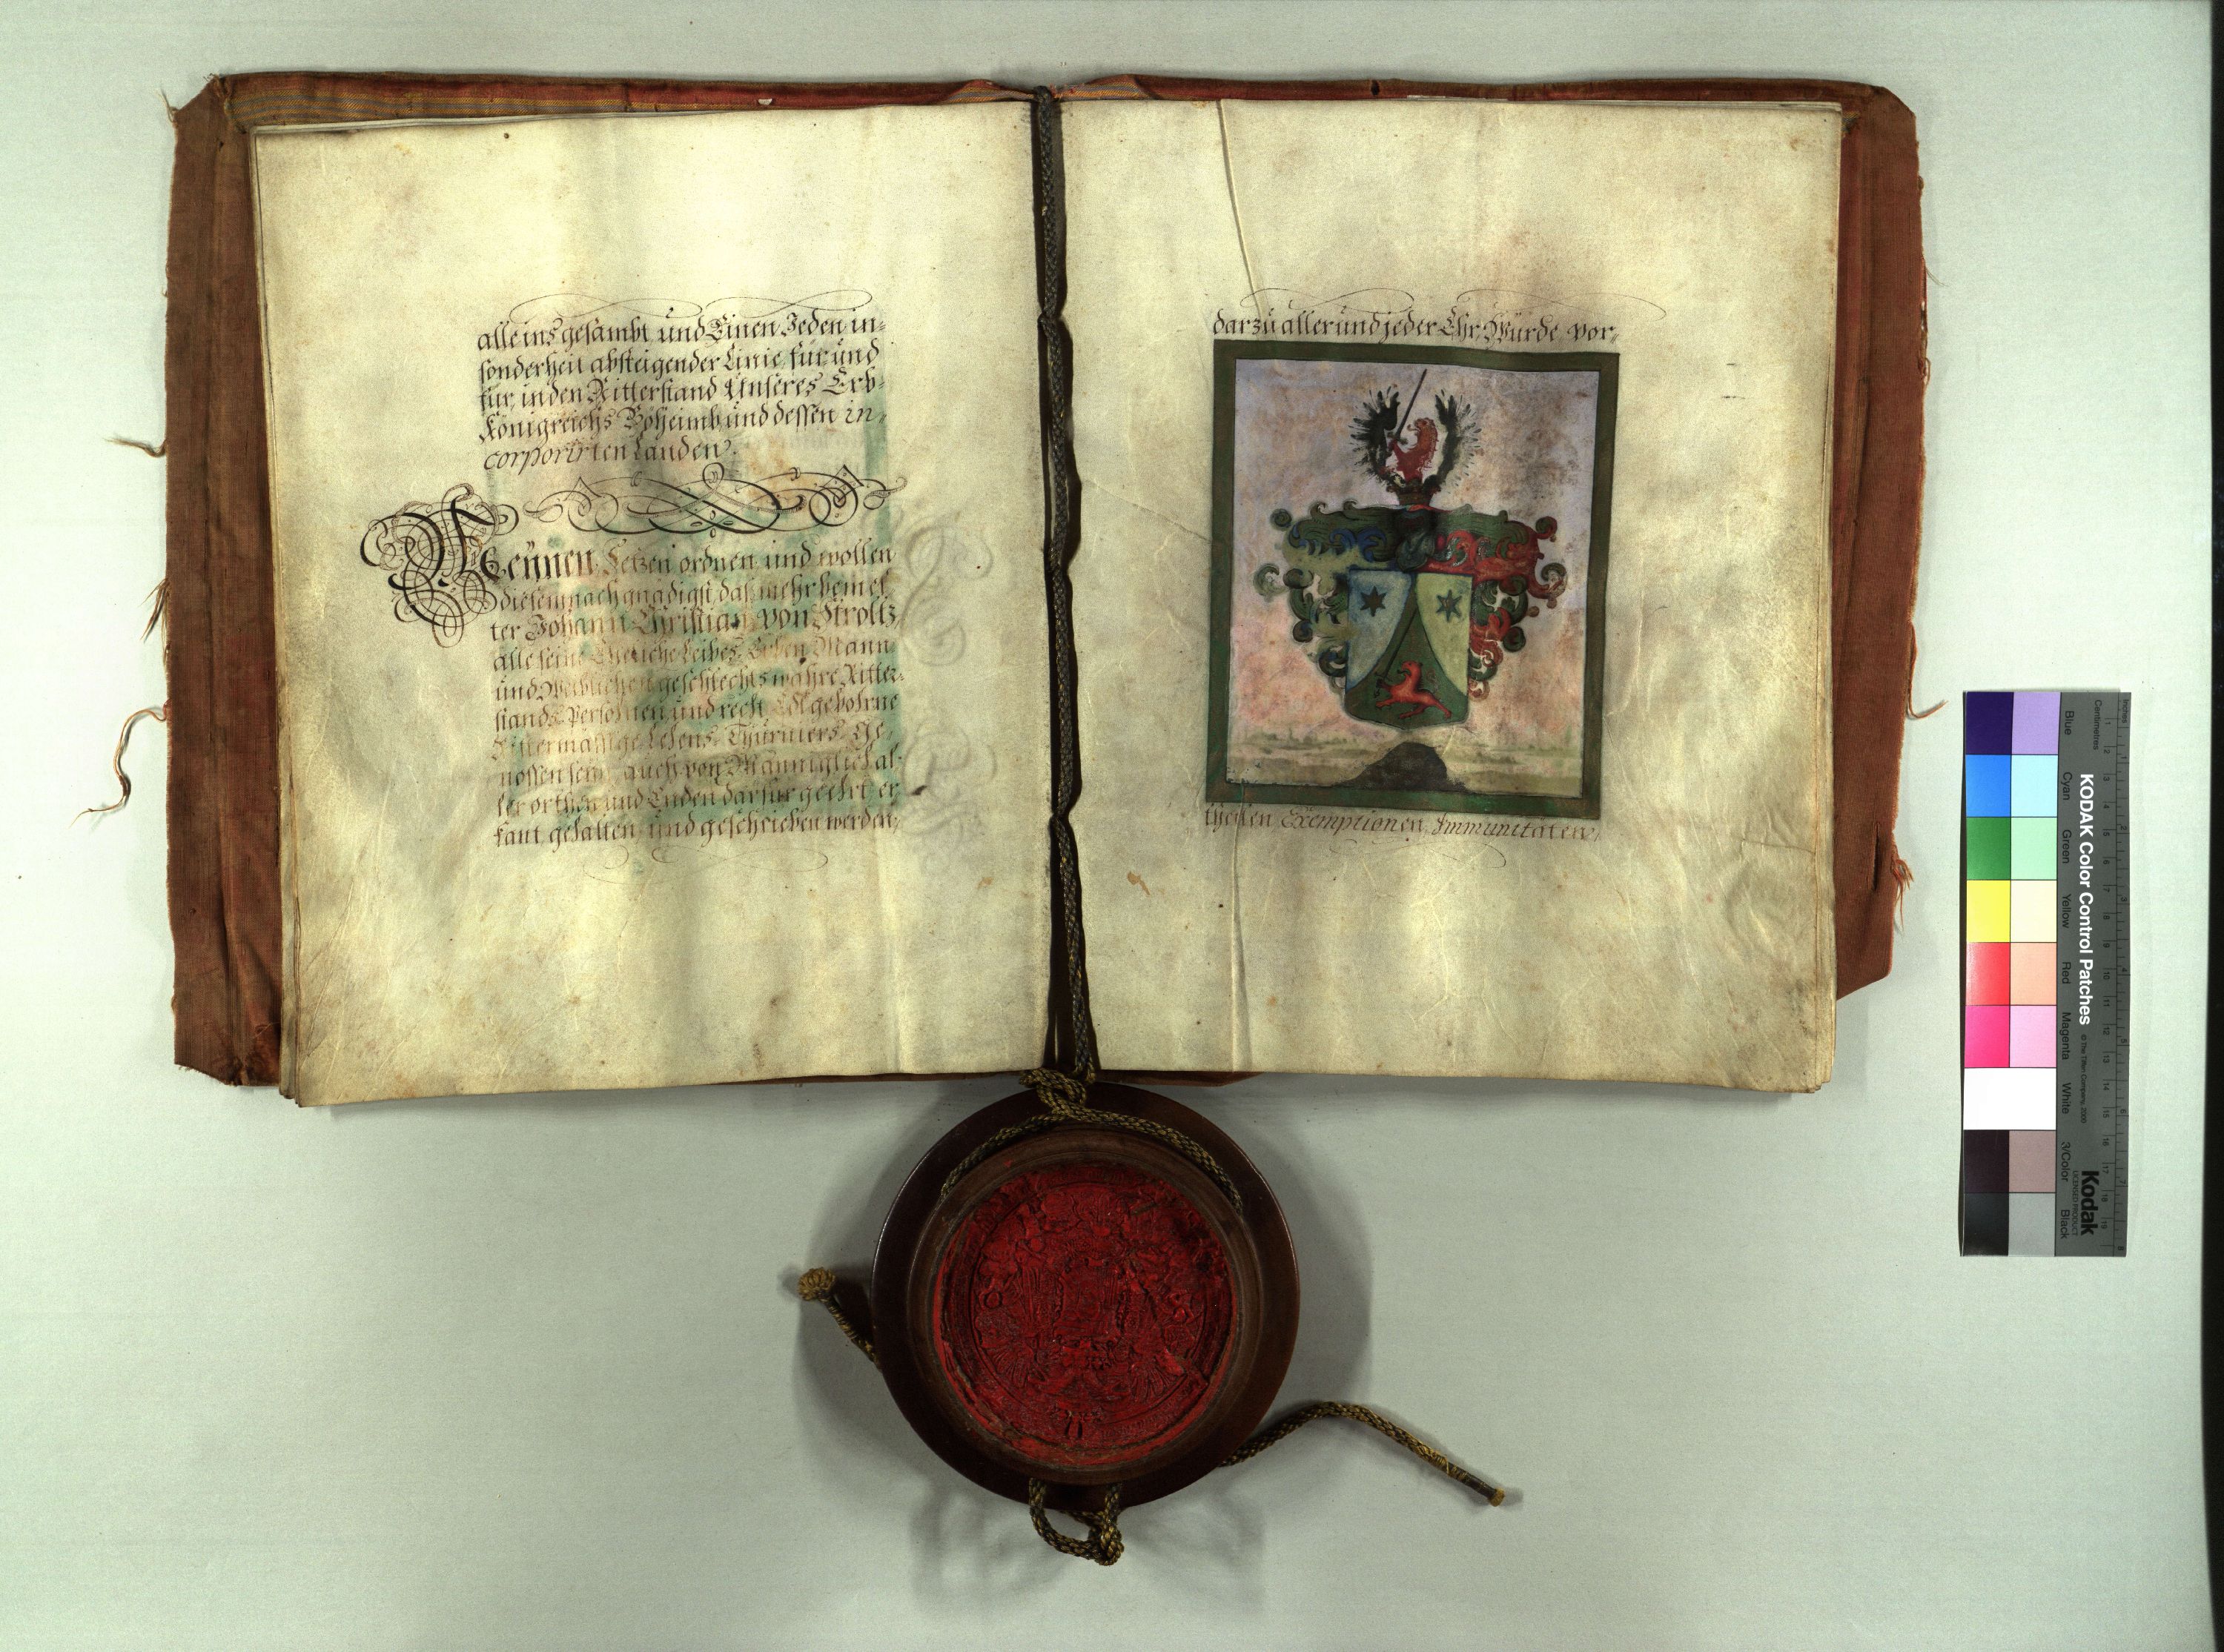 alle ins gesambt und Einen Jeden in=
sonderheit absteigender Linie für und
für, in den Ritterstand Unseres Erb=
Königreichs Böheimb und dessen in=
corporirten Landen.
Meÿnen Setzen ordnen und wollen
diesemnach gnädigst, daß mehr bemel
ter Johann Christian von Stroltz
alle seine Eheliche Leibes Erben Mann
und Weiblichen geschlechts wahre Ritter=
stands Persohnen und recht Edlgebohrne
Lehens Thurniers Ge=
nossen sein, auch von Männiglich al=
ler orthen und Enden darfür geehrt, er
kant, gehalten und geschrieben werden,
darzu aller und jeder Ehr, Würde vor=
theilen Exemptionen, Immunitäten,
KODAK Color Control Patches
© The Tiffen Company, 2000
Kodak
LICENSED PRODUCT
Inches
Centimetres
1 2 3 4 5 6 7 8
1 2 3 4 5 6 7 8 9 10 11 12 13 14 15 16 17 18 19
Blue Cyan Green Yellow Red Magenta White 3/Color Black